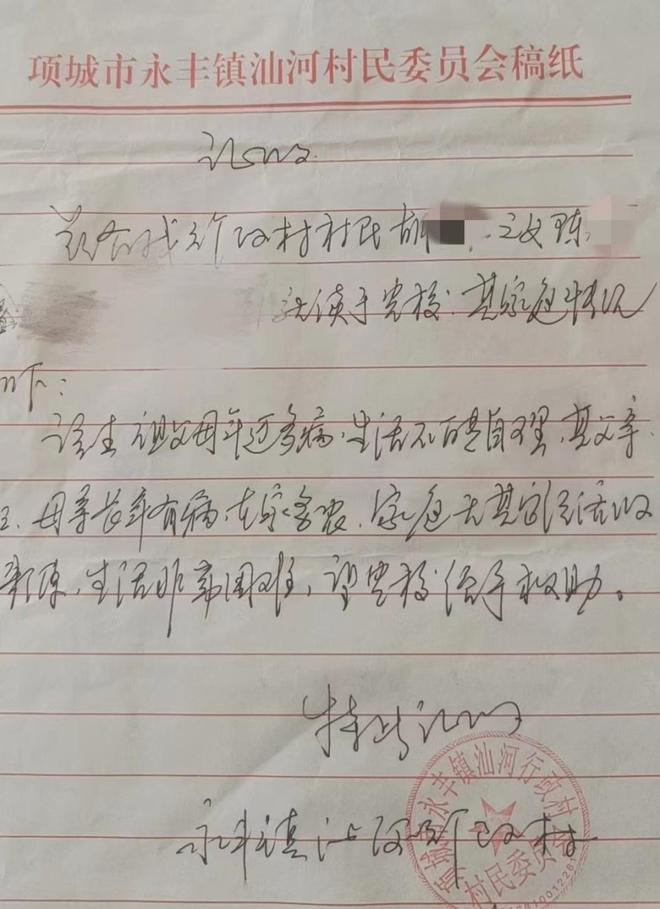 项城市永丰镇汕河村民委员会稿纸
证明
兹有我行政村村民胡 之女陈
就读于贵校.其家庭情况
如下:
该生祖父母年迈多病,生活不能自理,其父亲
母亲长年有病,在家务农,家庭无其它经济收
来源,生活非常困难,望贵校给予救助。
特此证明
永丰镇汕河行政村
永丰镇汕河行政村
村民委员会